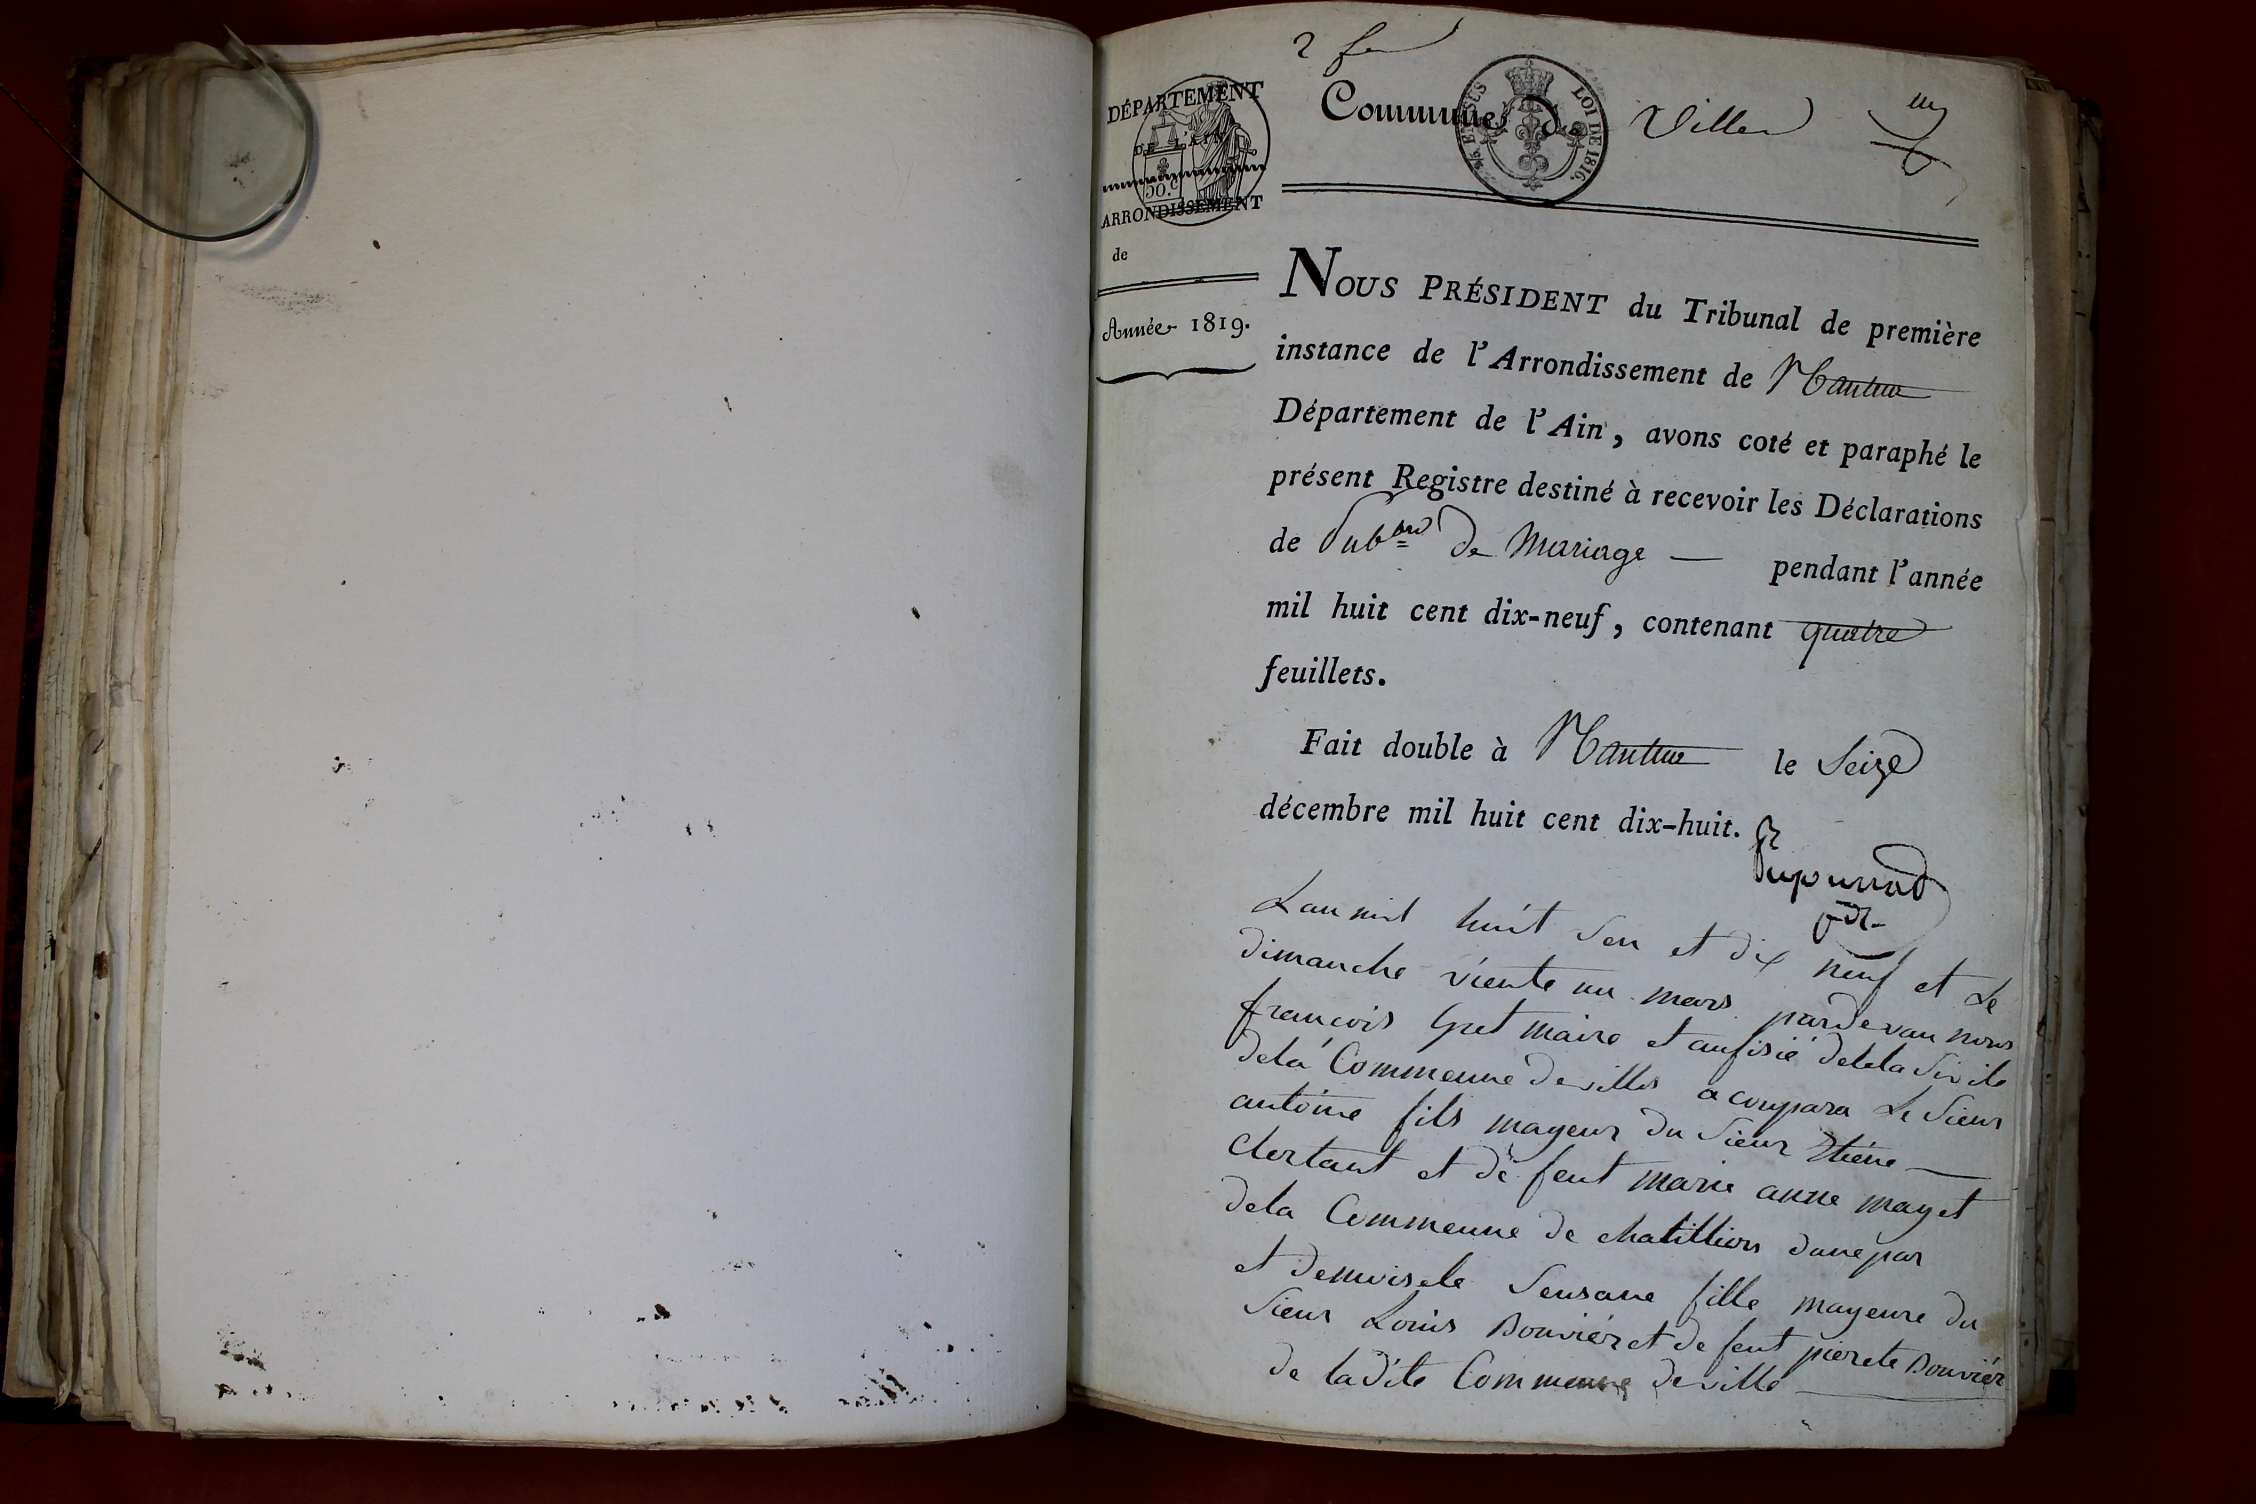 2 f
Commune de Villes
DÉPARTEMENT
DE L'AIN
50.c
ARRONDISSEMENT
de
Année 1819.
LOI DE 1816.
NOUS PRÉSIDENT du Tribunal de première
instance de l'Arrondissement de Nantua
Département de l'Ain, avons coté et paraphé le
présent Registre destiné à recevoir les Déclarations
de Pub.ons de Mariage — pendant l'année
mil huit cent dix-neuf, contenant quatre
feuillets.
Fait double à Nantua le Seize
décembre mil huit cent dix-huit.
Lan mil huit sen et dix neuf et Le
dimanche viente un mars pardevan nous
francois Gret maire et aufisié deleta Sivile
dela Commeune de villes a conpara Le Sieur
antoine fils mayeur du Sieur Etiéne —
Chertant et de feut marie anne mayet
dela Commeune de chatillion dane par
et demoisele Seusane fille mayeure du
Sieur Louis Bouviér et de feut pierete Bouviér
de ladite Commeune de ville —